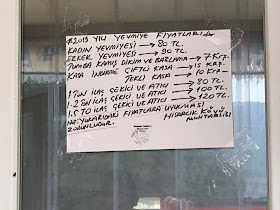 ※2019 YILI YEVMİYE FİYATLARI
KADIN YEVMİYESİ → 80 TL.
ERKEK YEVMİYESİ → 90 TL.
TUMBA KAMIŞ DİKİM VE BAĞLAMA → 7 KRŞ.
KASA İNDİRME ÇİFTLİ KASA → 15 KRŞ.
TEKLİ KASA → 10 KRŞ
1 TON İLAÇ ÇEKİCİ VE ATICI → 80 TL.
1.2 TON İLAÇ ÇEKİCİ VE ATICI → 100 TL.
1.5 TO İLAÇ ÇEKİCİ VE ATICI → 120 TL.
NOT: YUKARIDAKİ FİYATLARA UYULMASI
ZORUNLUDUR. HİSARCIK KÖYÜ
MUHTARLIĞI